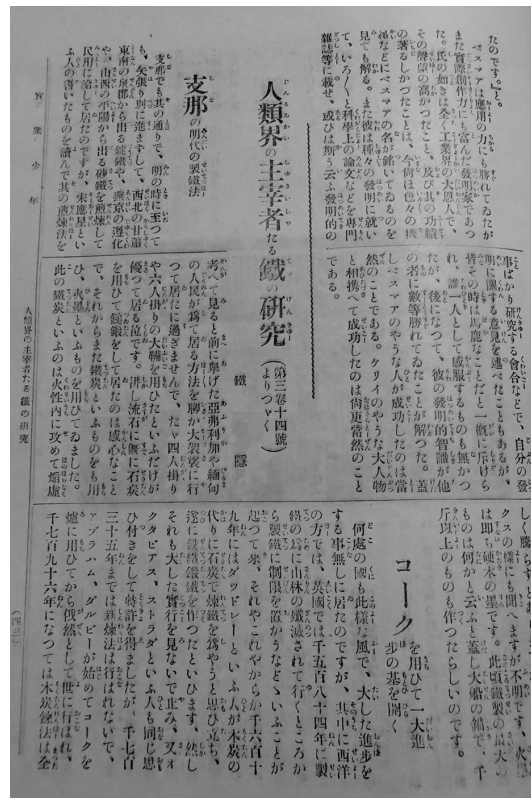 たのです』と。
ベスマアは應用の力にも勝れてゐたが
また實際創作力にも富んだ發明家であつ
た。氏の如きは全く工業界の大恩人で、
その聲望の高かつたこと、及び其の功績
の著るしかつたことは、今尚ほ色々の機
械などにベスマアの名が銘いてゐるのを
見ても解る。また彼は種々の發明に就い
て、いろ〱と科學上の論文などを專門
雜誌等に載せ、或ひは斯う云ふ發明的の
事ばかり研究する會合などで、自分の發
明に關する意見を述べたこともあるが、
皆その時は馬鹿なことだと一概に斥けら
れ、誰一人として感服するものも無かつ
たが、後になつて、彼の發明的智識が他
の者に數等勝れてゐたことが解つた。蓋
しベスマアのやうな人が成功したのは當
然のことである。ケリイのやうな大人物
と相携へて成功したのは尚更當然のこと
である。
人類界の主宰者たる鐵の研究
(第三卷十四號よりつゞく)
鐵隱
支那の明代の製鐵法
支那でも其の通りで、明の時に至つて
も、矢張り別に進まずして、西北の甘肅
東南の泉郡から出る錠鐵や、燕京の遵化
や、山西の平陽から出る砂鐵を煎煉して
民用に給して居たのですが、宋應星とい
ふ人の書いたものを讀んで其の煎煉法を
考へて見ると前に擧げた亞弗利加や緬甸
の人民が爲て居る方法を聊か大袈裟に行
つて居たに過ぎませんで、たゞ四人掛り
や六人掛りの大鞴を用ひたといふだけが
優つて居る位です。併し流石に既に石炭
を用ひて鎚鍛をして居たのは感心なこと
で、それからまた鐵炭といふものをも用
ひ、火墨といふものを用ひてゐました。
此の鐵炭といふのは火性內に攻めて焰虛
クスの樣にも聞へますが不明です、
は即ち硬木の墨です。此頃鐵製の最大の
ものは何かと云ふと蓋し大船の錨で、千
斤以上のものも作つたらしいのです。
コークを用ひて一大進步の基を開く
何處の國も此樣な風で、大した進步を
する事無しに居たのですが、其中に西洋
の方では、英國では千五百八十四年に製
鐵の爲に山林の殲滅されて行くところか
ら製鐵に制限を置かうなどゝいふことが
起つて來、それやこれやからか千六百十
九年にはダッドレーといふ人が木炭の
代りに石炭で煉鐵を爲やうと思ひ立ち、
遂に銑鐵鍛鐵を作つたといひます。然し
それも大した實行を見ないで止み、又オ
クタビアス、ストラダといふ人も同じ思
ひ付きをして特許を得ましたが、千七百
三十五年までは新煉法は行はれないで、
アブラハム、ダルビーが始めてコークを
爐に用ひてから俄然として世に行はれ、
千七百九十六年になつては木炭煉法は全
實業少年
人類界の主宰者たる鐵の研究
(四三)